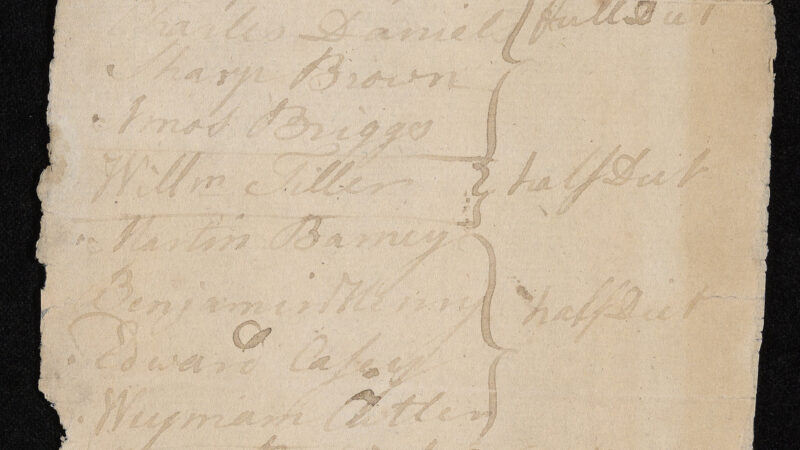 Charles Daniels full Diet
Sharp Brown
Amos Briggs
Willm Tiller half Diet
Martin Barney
Benjamin Henry half Diet
Edward Casey
Cutler